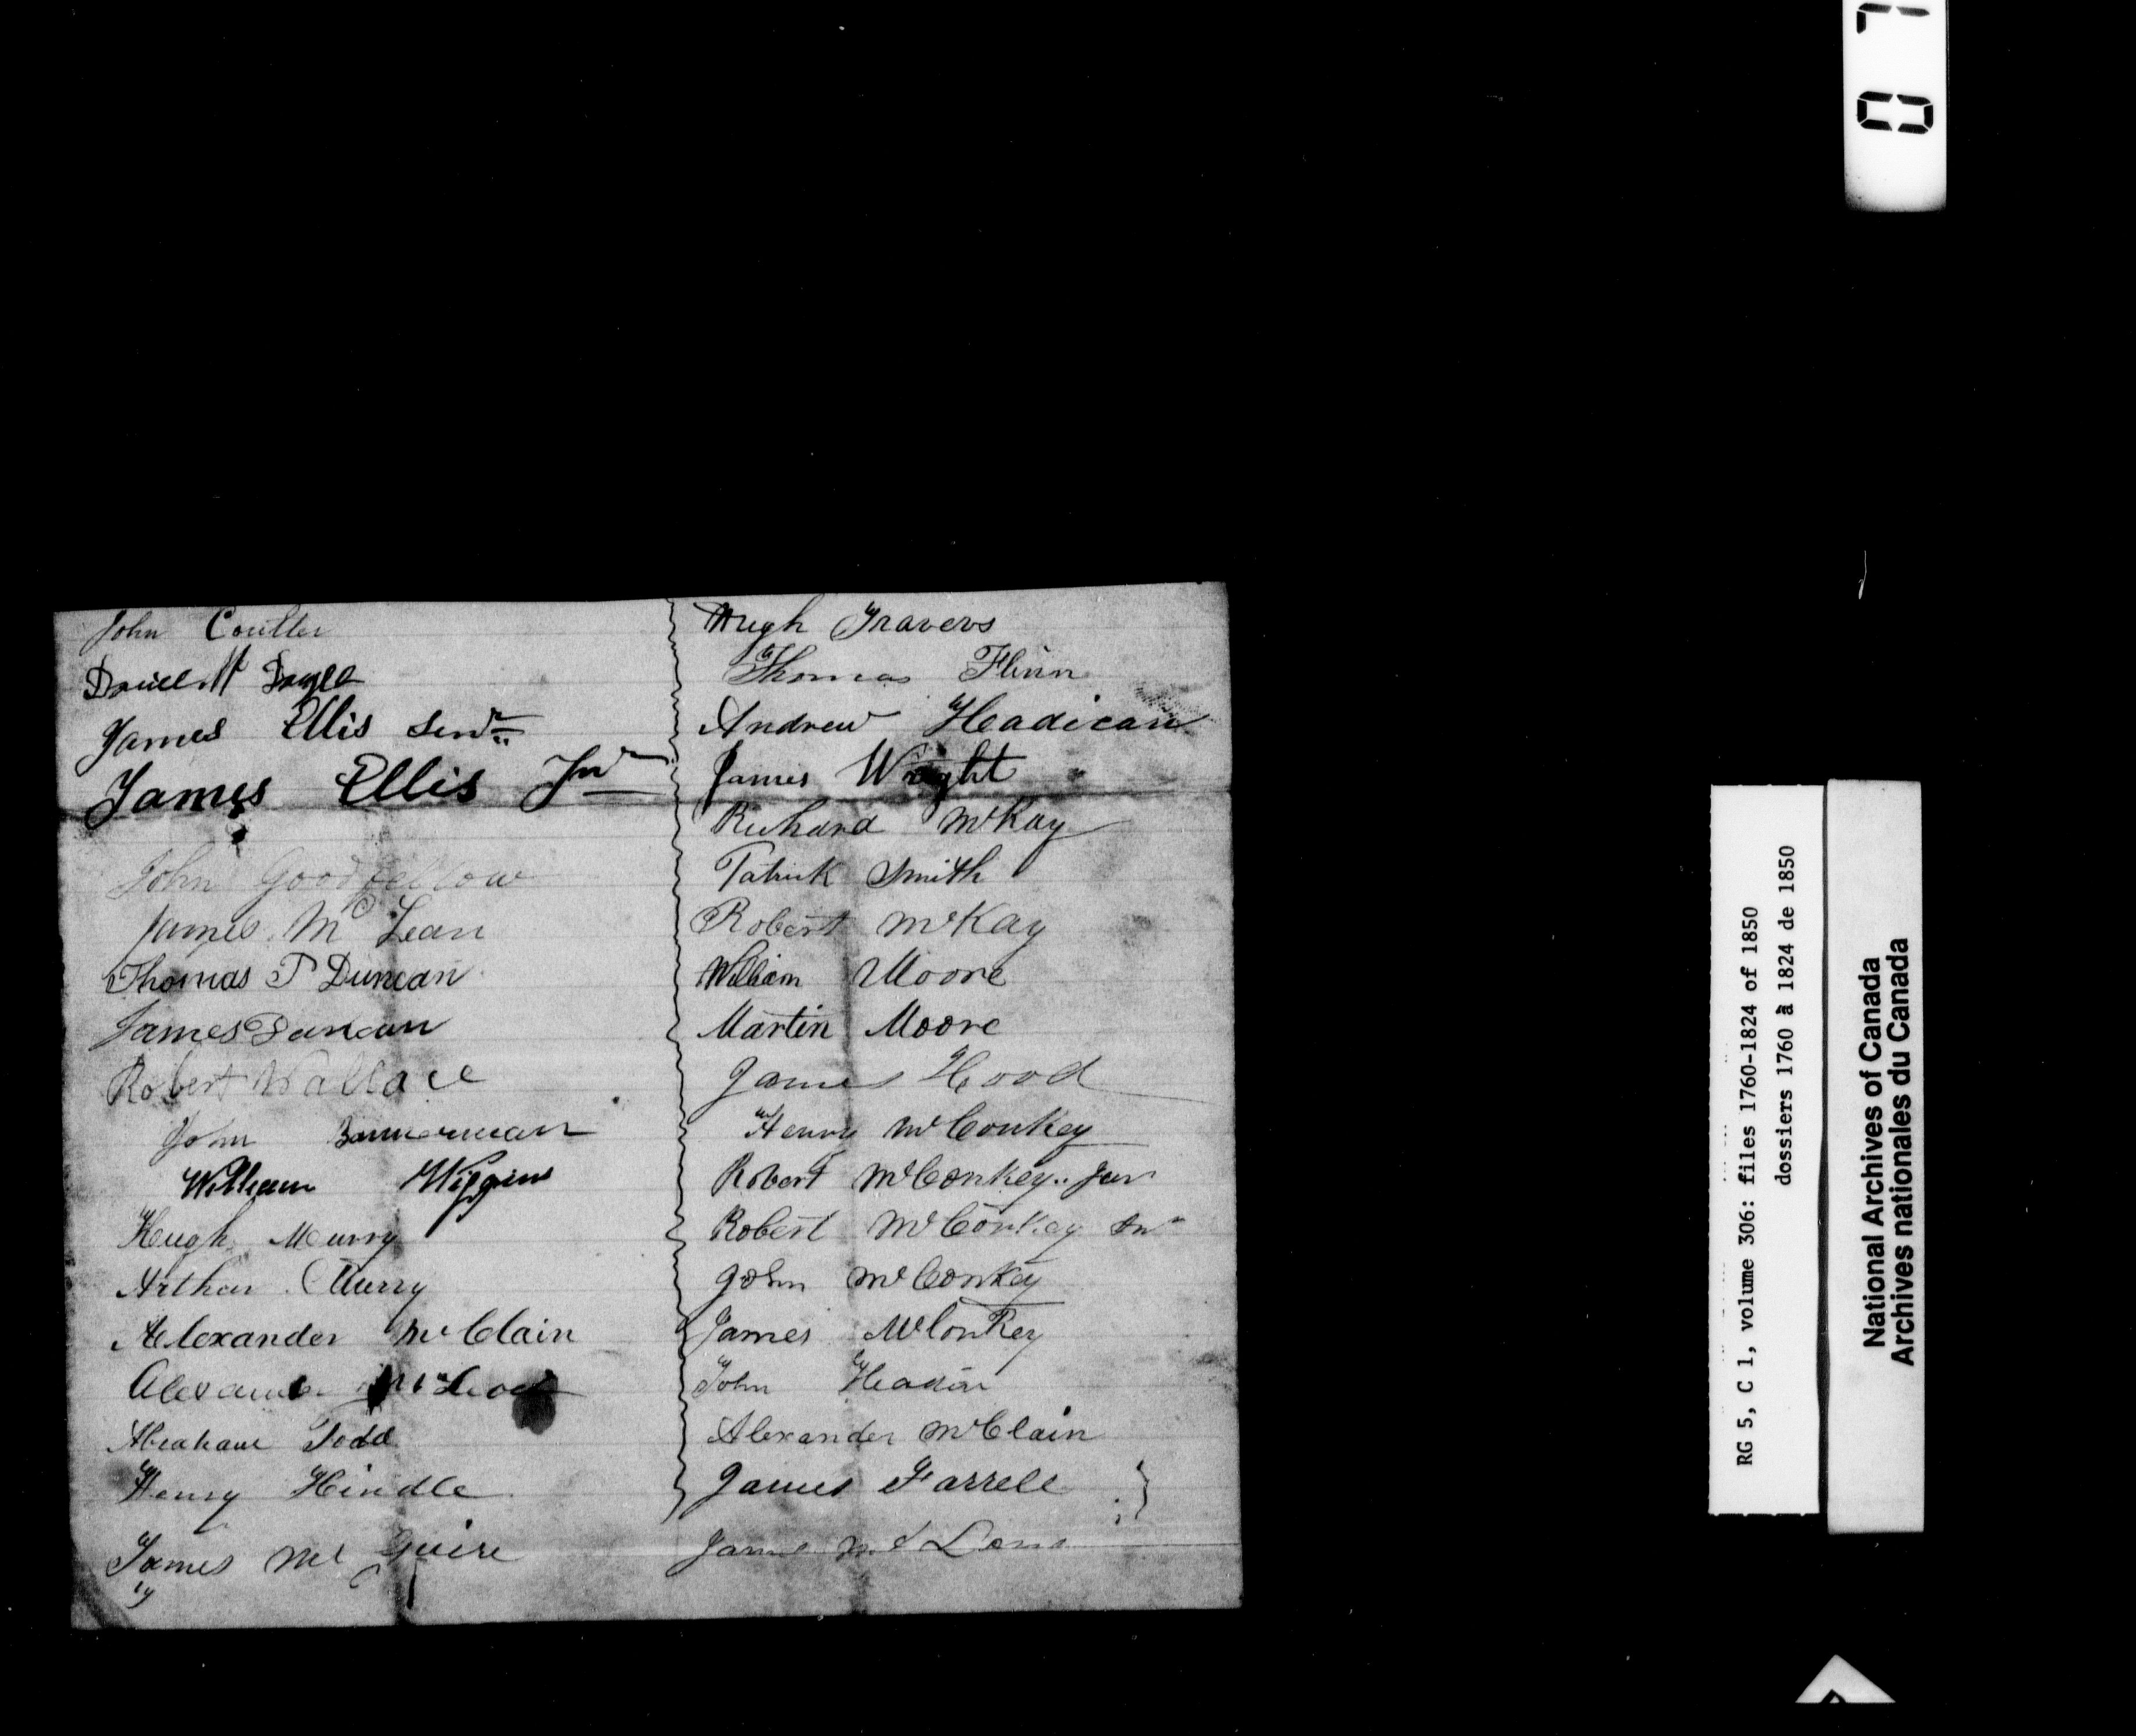 John Coulter
James Ellis Senr
James Ellis Jnr
John Goodfellow
James Mc Lean
Thomas P Duncan
James Duncan
Robert Wallace
John Bannerman
William Wiggins
Hugh Murry
Arthur Murry
Alexander McClain
Alexander McLeod
Abraham Todd
Henry Hindle
James Mc Guire
19
Hugh Travers
Thomas Flinn
Andrew Headican
James Wright
Richard McKay
Patrick Smith
Robert McKay
William Moore
Martin Moore
James Hood
Henry McConkey
Robert McConkey.. Jun
Robert McConkey Snr
John McConkey
James McConkey
John Headin
Alexander McClain
James Farrell
James
RG 5, C 1, volume 306: files 1760-1824 of 1850
dossiers 1760 à 1824 de 1850
National Archives of Canada
Archives nationales du Canada